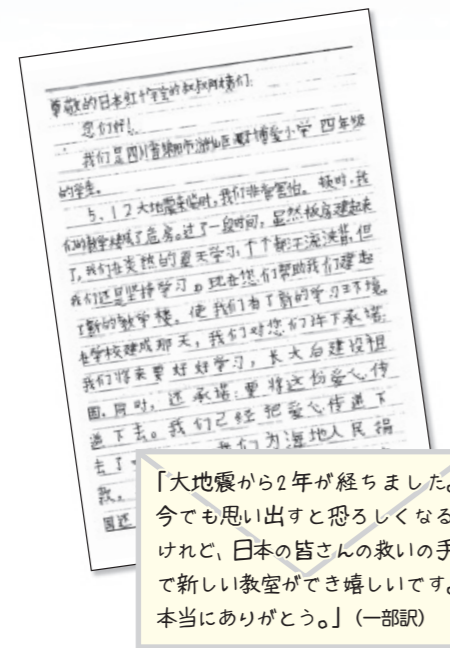 尊敬的日本红十字会的叔叔阿姨们:
您们好!
我们是四川省绵阳市游仙区博爱小学 四年级
的学生。
5.12大地震来临时,我们非常害怕。顿时,我
们的教学楼成了危房。过了一段时间,虽然板房建起来
了,我们在炎热的夏天学习,个个都汗流浃背,但
我们还是坚持学习。现在您们帮助我们建起
了新的教学楼,使我们有了新的学习环境。
在学校建成那天,我们对您们许下承诺:
我们将来要好好学习,长大后建设祖
国。同时,还承诺:要将这份爱心传
递下去。我们已经把爱心传递下
去了 我们为海地人民捐
款。
国还
「大地震から2年が経ちました。
今でも思い出すと恐ろしくなる
けれど、日本の皆さんの救いの手
で新しい教室ができ嬉しいです。
本当にありがとう。」(一部訳)